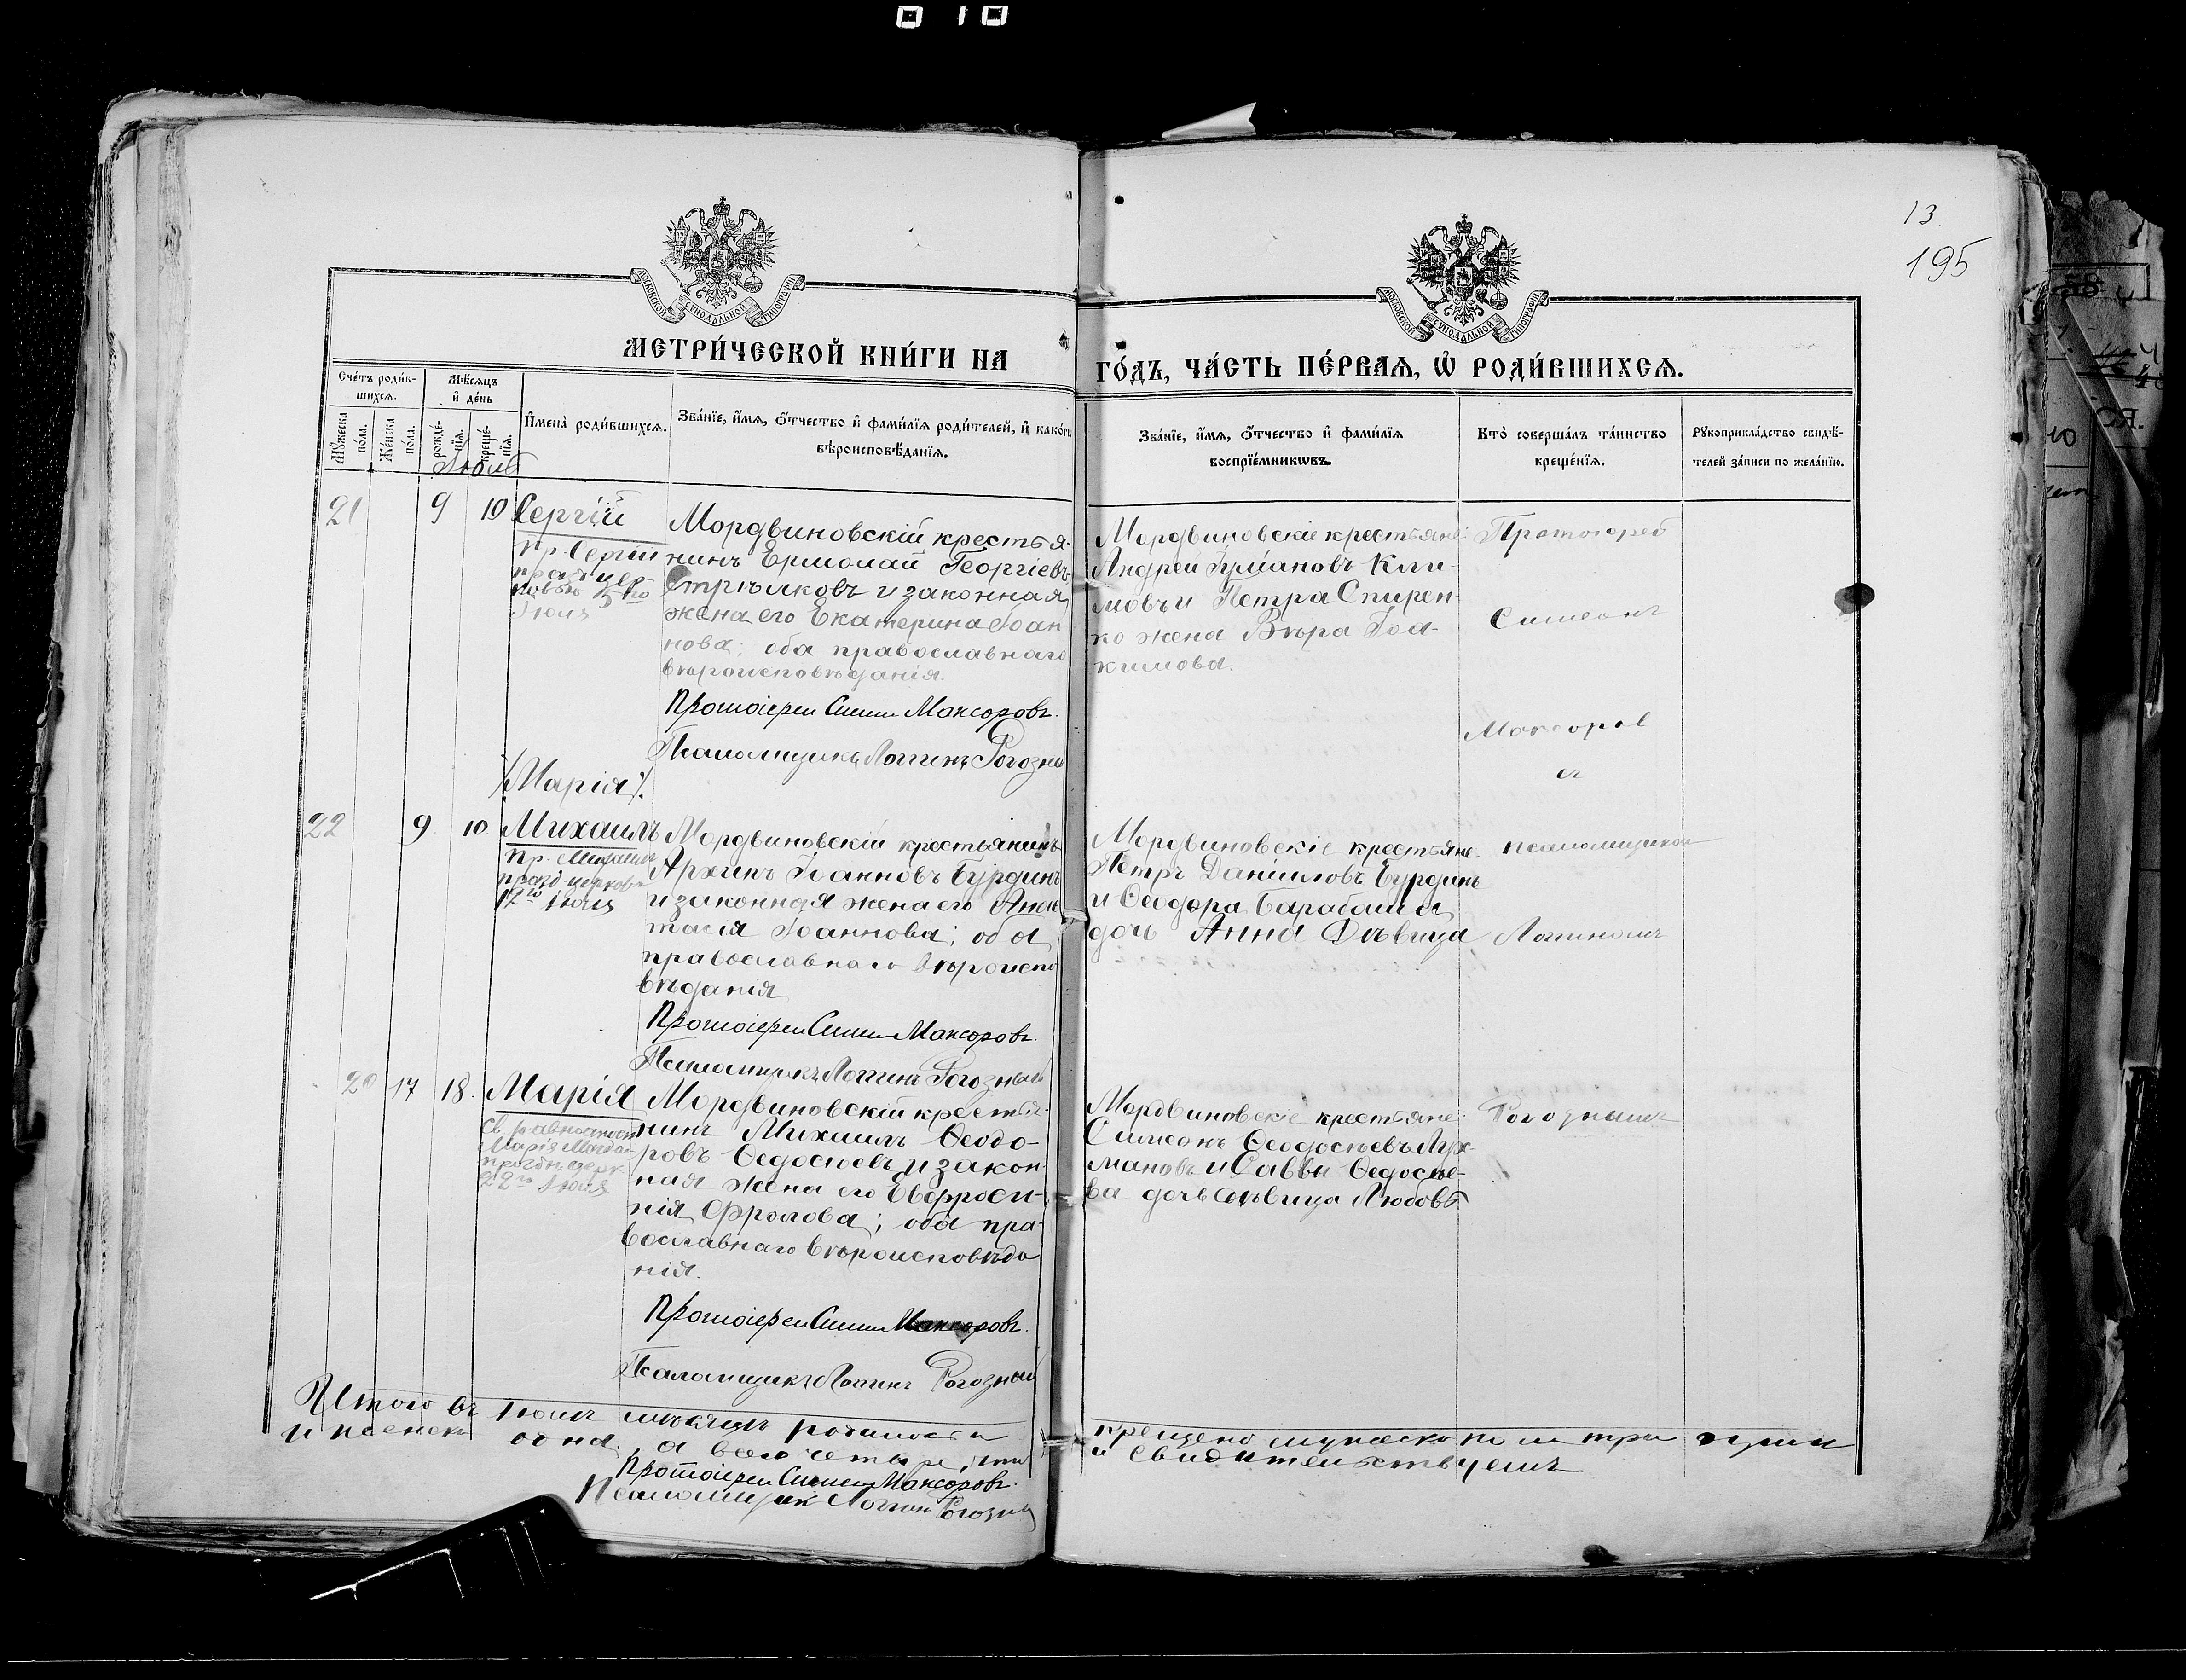 13.
195
МОСКОВСКОЙ СѴНОДАЛЬНОЙ ТИПОГРАФІИ
МОСКОВСКОЙ СѴНОДАЛЬНОЙ ТИПОГРАФІИ
МЕТРИ́ЧЕСКОЙ КНИ́ГИ НА
ГО́ДЪ, ЧА́СТЬ ПЕ́РВАЯ, Ѡ҆ РОДИ́ВШИХСЯ.
Сче́тъ роди́в-
шихся.
Мѣ́сяцъ
и҆ де́нь
Мꙋ́жеска
по́ла.
Же́нска
по́ла.
рожде́-
нїя.
креще́-
нїя.
И҆мена̀ роди́вшихся.
Зва́нїе, и҆́мя, ѻ҆́тчество и҆ фами́лїя роди́телей, и҆ како́гѡ
вѣроисповѣ́данїя.
Зва́нїе, и҆́мя, ѻ҆́тчество и҆ фами́лїя
воспрїе́мникѡвъ.
Кто̀ соверша́лъ та́инство
креще́нїя.
Рꙋкоприкла́дство свидѣ́-
телей за́писи по жела́нїю.
Іюль
21 9 10 Сергій
Пр. Сергій
празд. цер-
ковью 5го
Іюля
Мордвиновскій крестья-
нинъ Ермолай Георгіевъ
Стрѣлковъ и законная
жена его Екатерина Іоан
нова; оба православнаго
вѣроисповѣданія.
Протоіерей Симеонъ Максоровъ.
Псаломщикъ Логгинъ Рогозный
Мордвиновскіе крестьяне:
Андрей Кли-
мовъ и Петра Спирен-
ко жена Вѣра Іоа-
кимова.
Протоіерей
Симеонъ
Максоров
съ
/Марія/.
22 9 10 Михаилъ
Пр. Михаилъ
празд. церковью
12го Іюля
Мордвиновскій крестьянинъ
Архипъ Іоанновъ Бурдинъ
и законная жена его Анас
тасія Іоаннова; оба
православнаго вѣроиспо
вѣданія
Протоіерей Симеонъ Максоровъ.
Псаломщикъ Логгинъ Рогозный
Мордвиновскіе крестьяне:
Петръ Даніиловъ Бурдинъ
и Ѳеодора Барабаша
дочь Анна Дѣвица
псаломщикомъ
Логиномъ
20 17 18. Марія
Св. равноапост
Марія Магда
празд. церк
22го Іюля
Мордвиновскій крестья-
нинъ Михаилъ Ѳеодо-
ровъ Ѳедосѣевъ и закон-
ная жена его Евфроси-
нія Фролова; оба пра-
вославнаго вѣроисповѣда
нія.
Протоіерей Симеонъ Максоровъ.
Псаломщикъ Логгинъ Рогозный
Мордвиновскіе крестьяне:
Симеонъ Ѳеодосѣевъ
и Саввы Ѳедосѣе-
ва дочь дѣвица Любовь
Рогознымъ
Итого въ Іюлѣ мѣсяцѣ родилось и
крещено мужеско пола три
и женска одна, а всего четыре,
и свидѣтельствуемъ
Протоіерей Симеонъ Максоровъ.
Псаломщик Логгин Рогозный